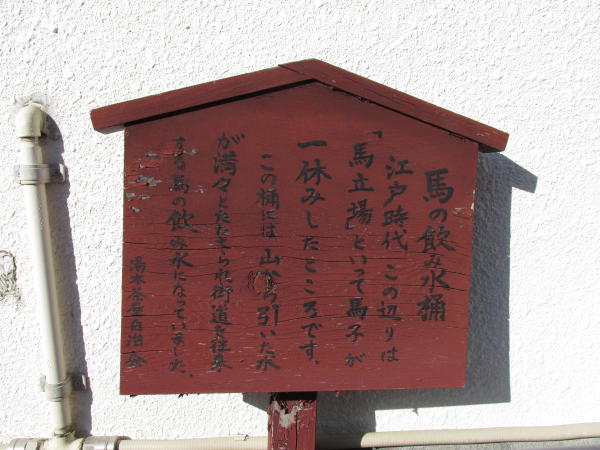 馬の飲み水桶
江戸時代この辺りは
「馬立場」といって馬子が
一休みしたところです。
この桶には山から引いた水
が満々とたたえられ街道を往来
する馬の飲み水になっていました。
湯本茶屋自治会